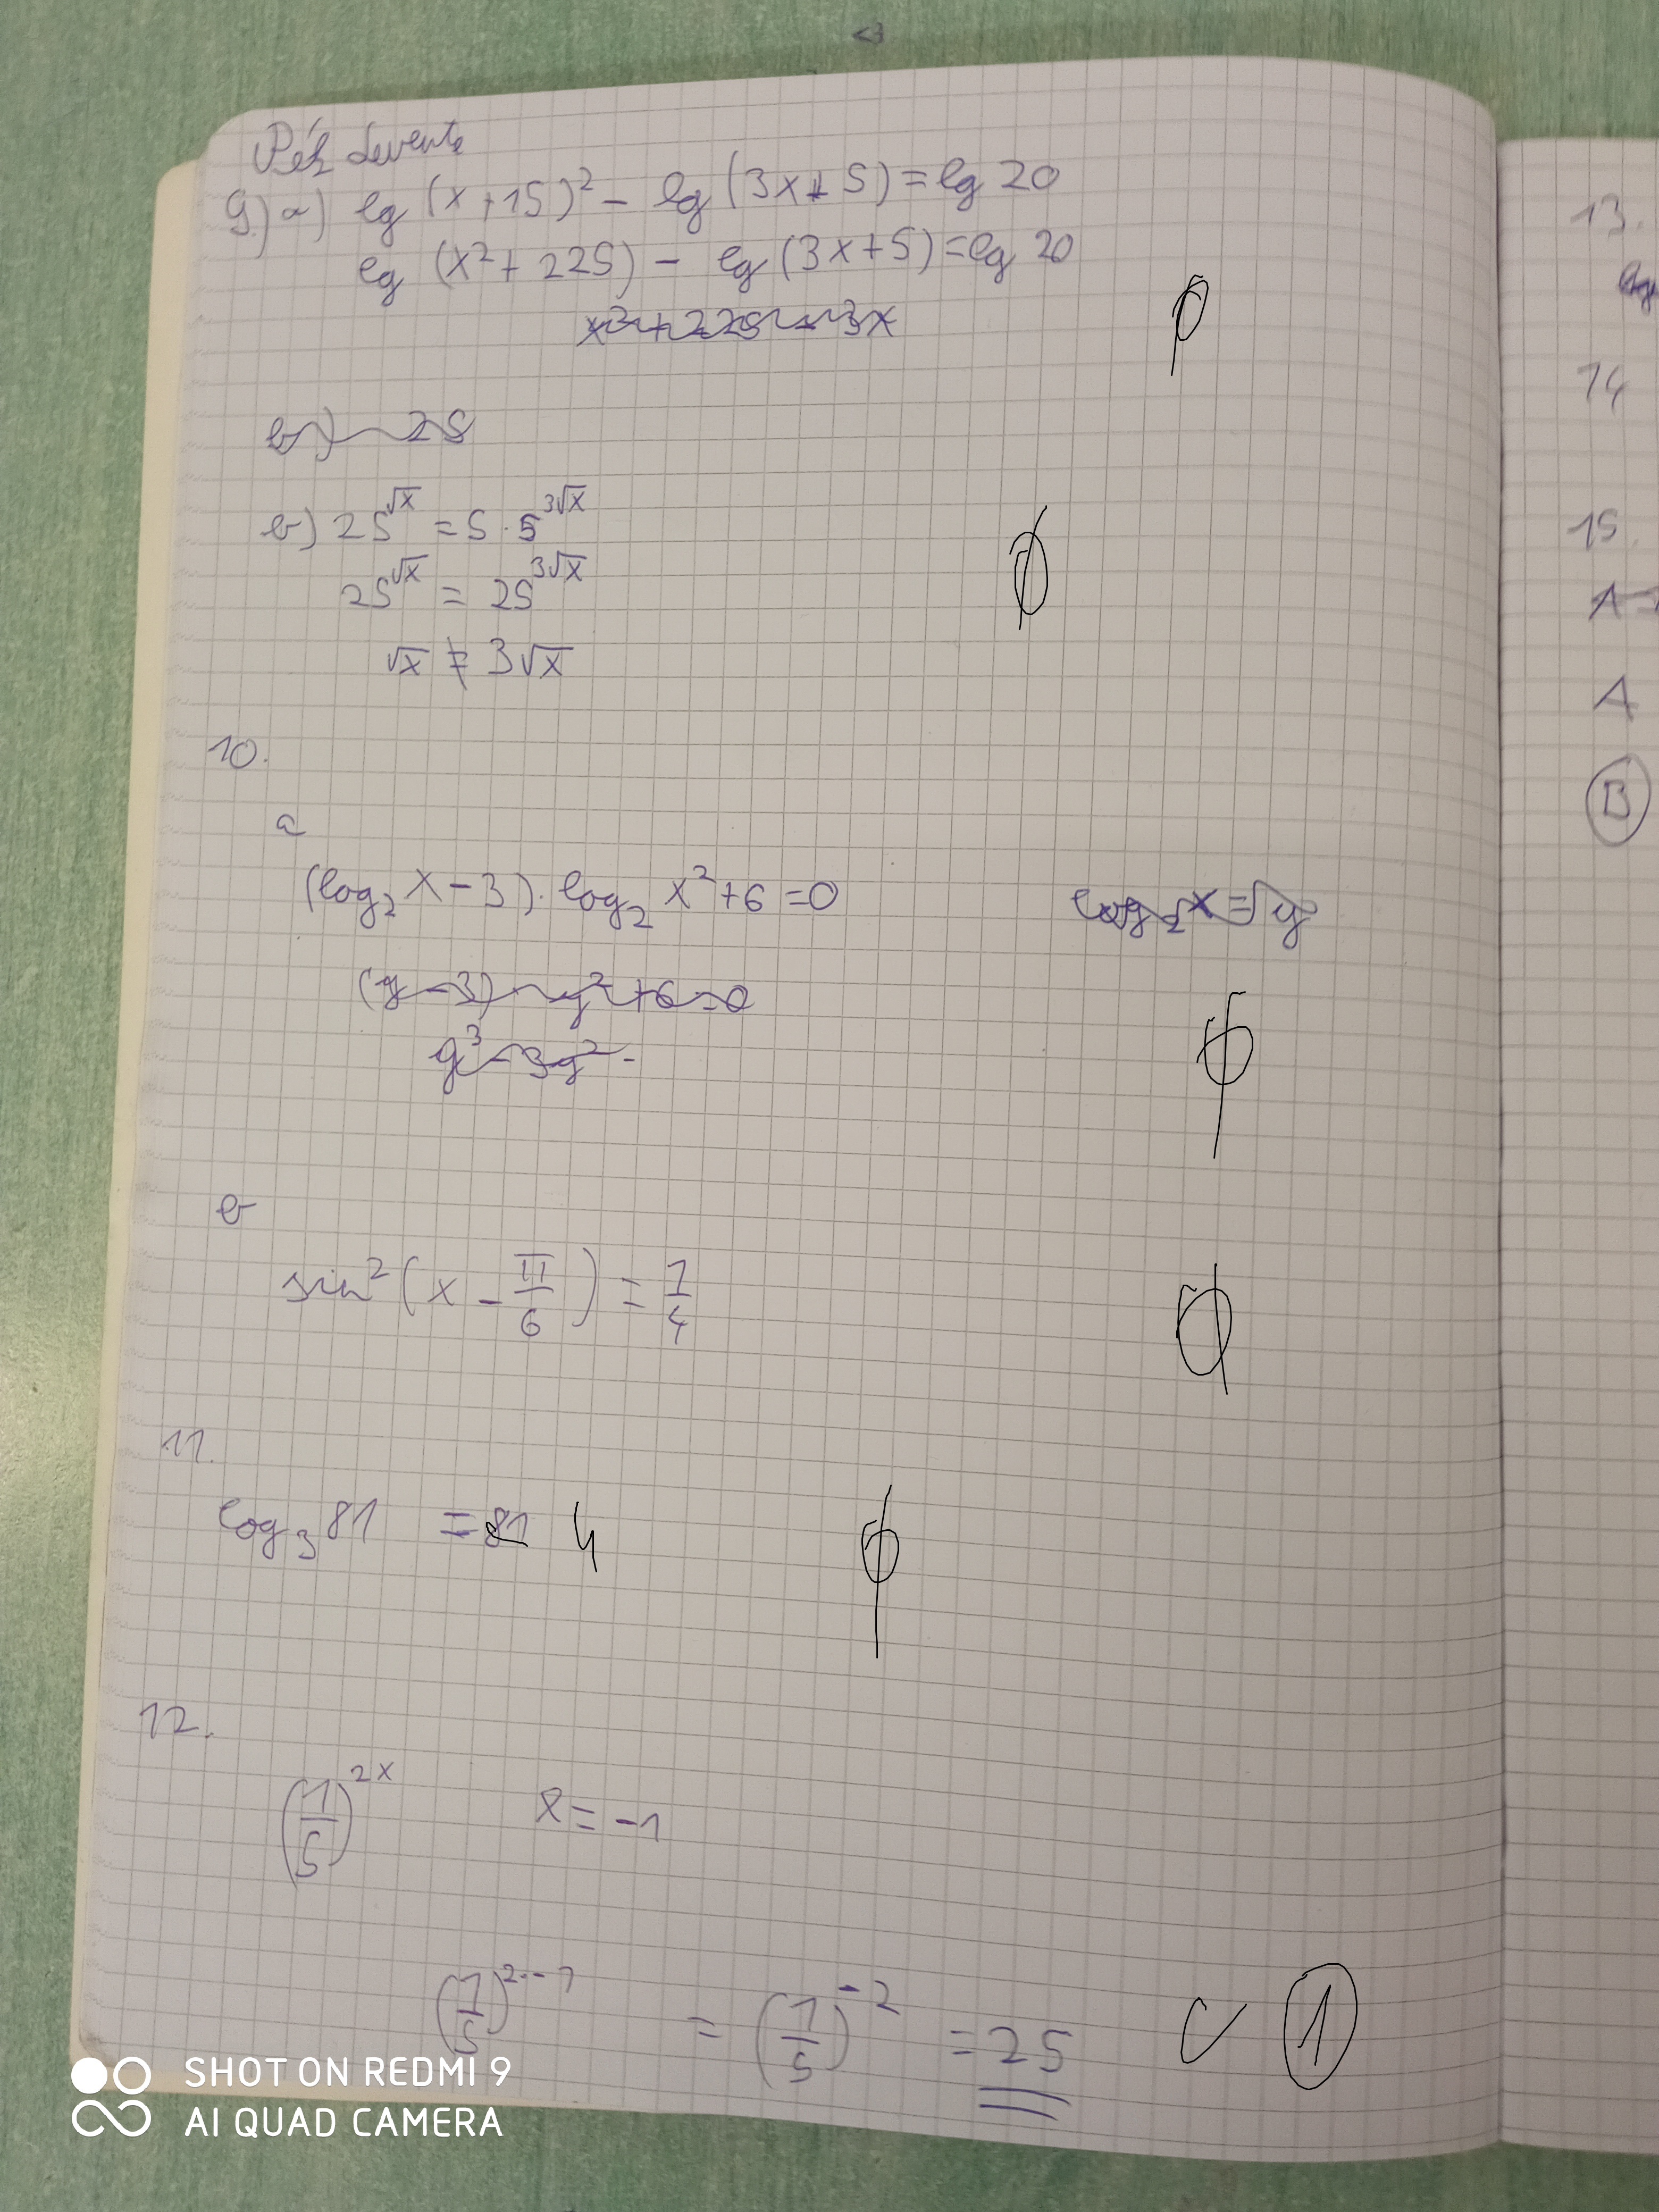 Pék Levente
9.) a) lg (x+15)² - lg (3x+5) = lg 20
lg (x² + 225) - lg (3x+5) = lg 20
x² + 225 - 3x
b) 25
b) 25^√x = 5 · 5^3√x
25^√x = 25^3√x
√x ≠ 3√x
10.
a
(log₂ x - 3) · log₂ x² + 6 = 0
log₂ x = y
(y - 3) · y² + 6 = 0
y³ - 3y² -
b
sin² (x - π/6) = 1/4
11.
log₃ 81 = 81 4
12.
(1/5)^2x x = -1
(1/5)^2·-1 = (1/5)^-2 = 25 ✓ 1
13.
14
15.
A
A
B
SHOT ON REDMI 9
AI QUAD CAMERA